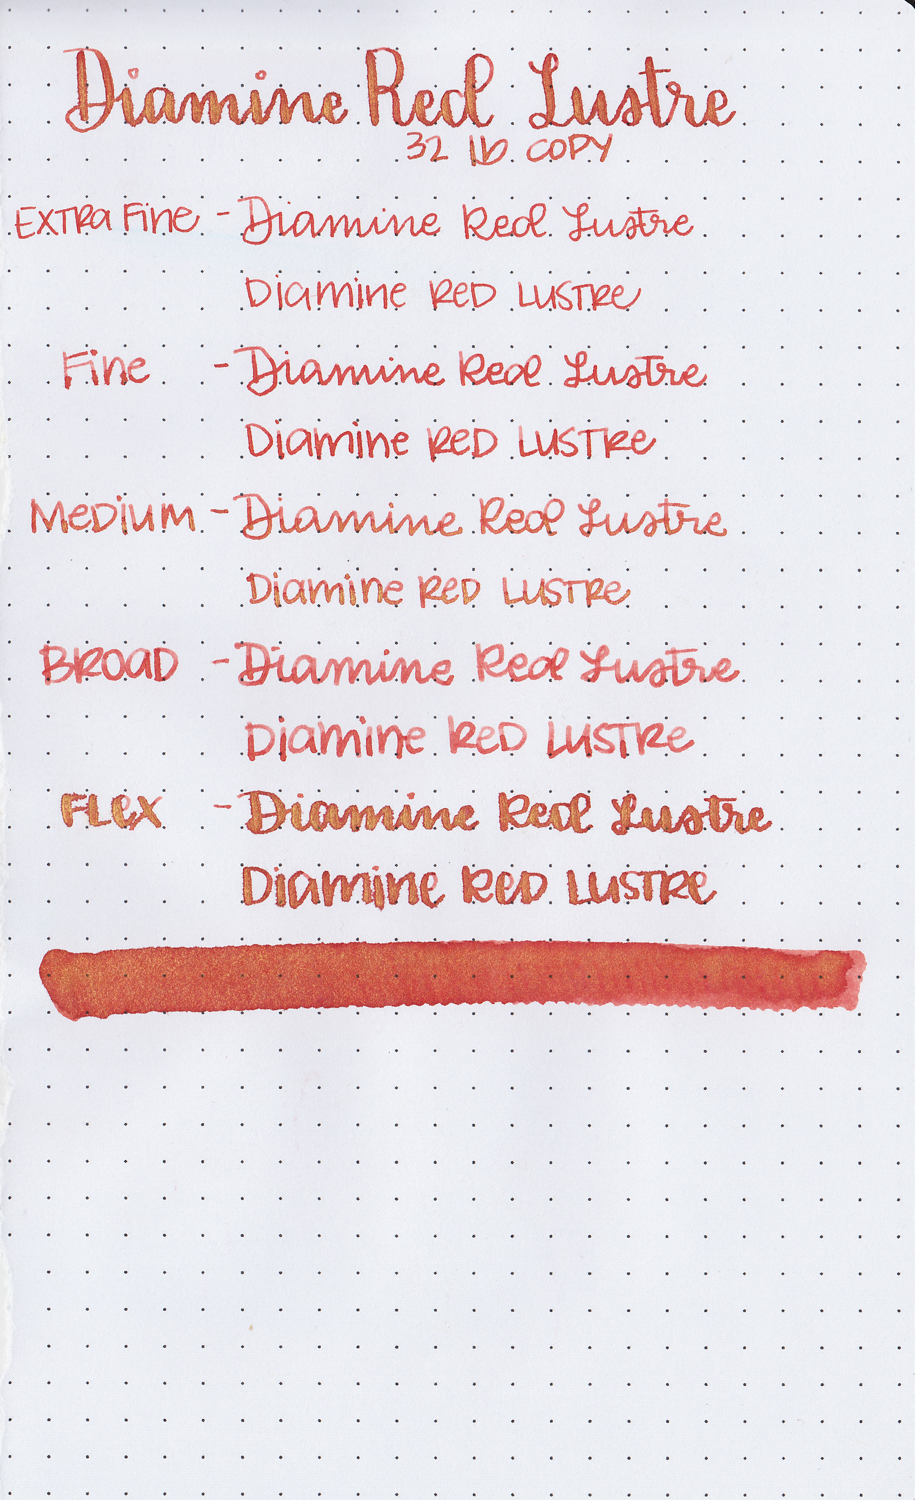 Diamine Red Lustre
32 lb copy
Extra Fine - Diamine Red Lustre
Diamine RED LUSTRE
Fine - Diamine Red Lustre
Diamine RED LUSTRE
Medium - Diamine Red Lustre
Diamine RED LUSTRE
BROAD - Diamine Red Lustre
Diamine RED LUSTRE
FLEX - Diamine Red Lustre
Diamine RED LUSTRE